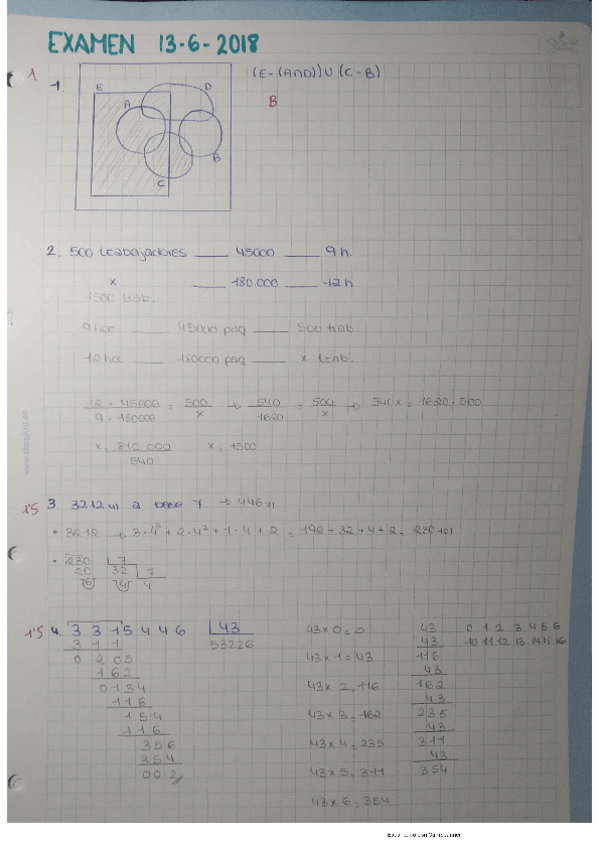 EXAMEN 13-6-2018
1
1.
(E-(A∩D))∪(C-B)
B
E
D
A
B
C
2. 500 trabajadores ___ 45000 ___ 9 h.
x ___ 180.000 ___ 12 h
1500 trab.
9 hor. ___ 45000 paq ___ 500 trab.
12 hor ___ 180000 paq ___ x trab.
12 · 45000 / 9 · 180000 = 500 / x → 540 / 1620 = 500 / x → 540x = 1620 · 500
x = 810 000 / 540 x = 1500
1'5 3 3212 (4) a base 7 → 446 (7)
• 3212 → 3·4³ + 2·4² + 1·4 + 2 = 192 + 32 + 4 + 2 = 230 (10)
• 230 7
20 32 7
6 4 4
1'5 4. 3 3 1 5 4 4 6 43
3 1 1 53226
0 2 0 5
1 6 2
0 1 3 4
1 1 6
1 5 4
1 1 6
3 5 6
3 5 4
0 0 2
43 x 0 = 0
43 x 1 = 43
43 x 2 = 116
43 x 3 = 162
43 x 4 = 235
43 x 5 = 311
43 x 6 = 354
43
43
116
43
162
43
235
43
311
43
354
0 1 2 3 4 5 6
10 11 12 13 14 15 16